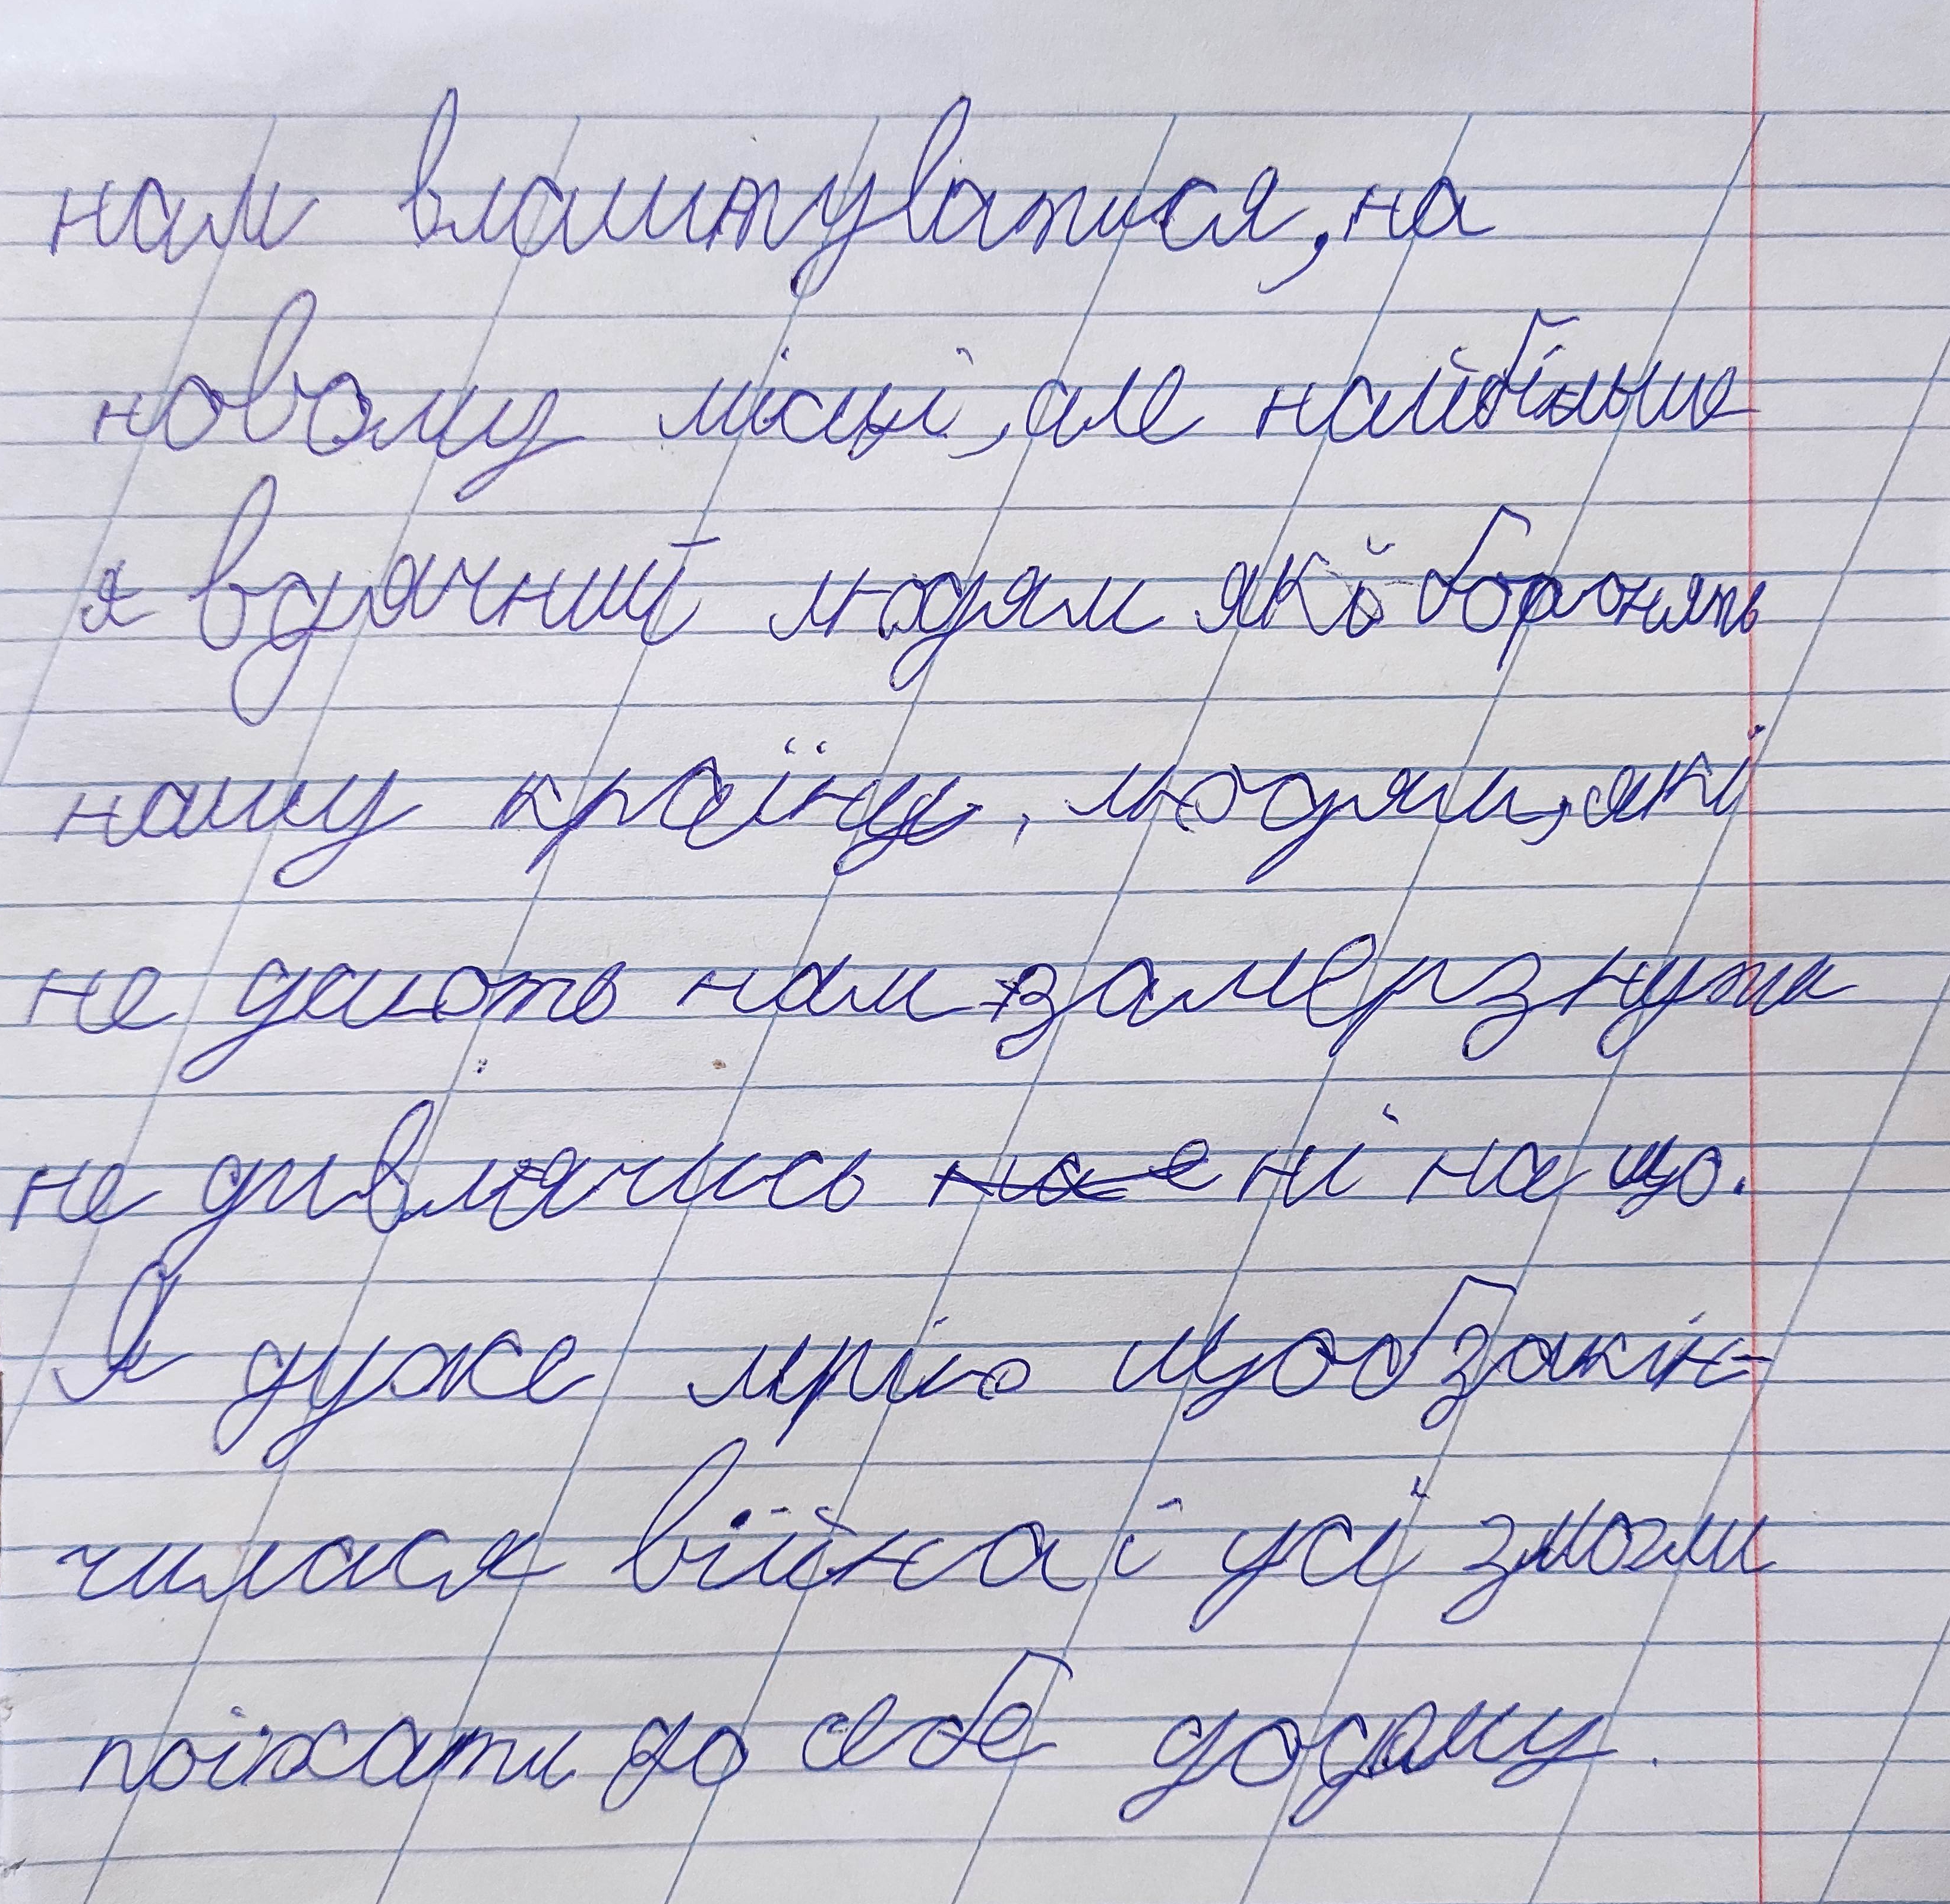 нам влаштуватися, на
новому місці, але найбільше
я вдячний людям які боронять
нашу країну, людям, які
не дають нам замерзнути
не дивлячись ні на що.
Я дуже мрію щоб закін-
чилася війна і усі змогли
поїхати до себе додому.